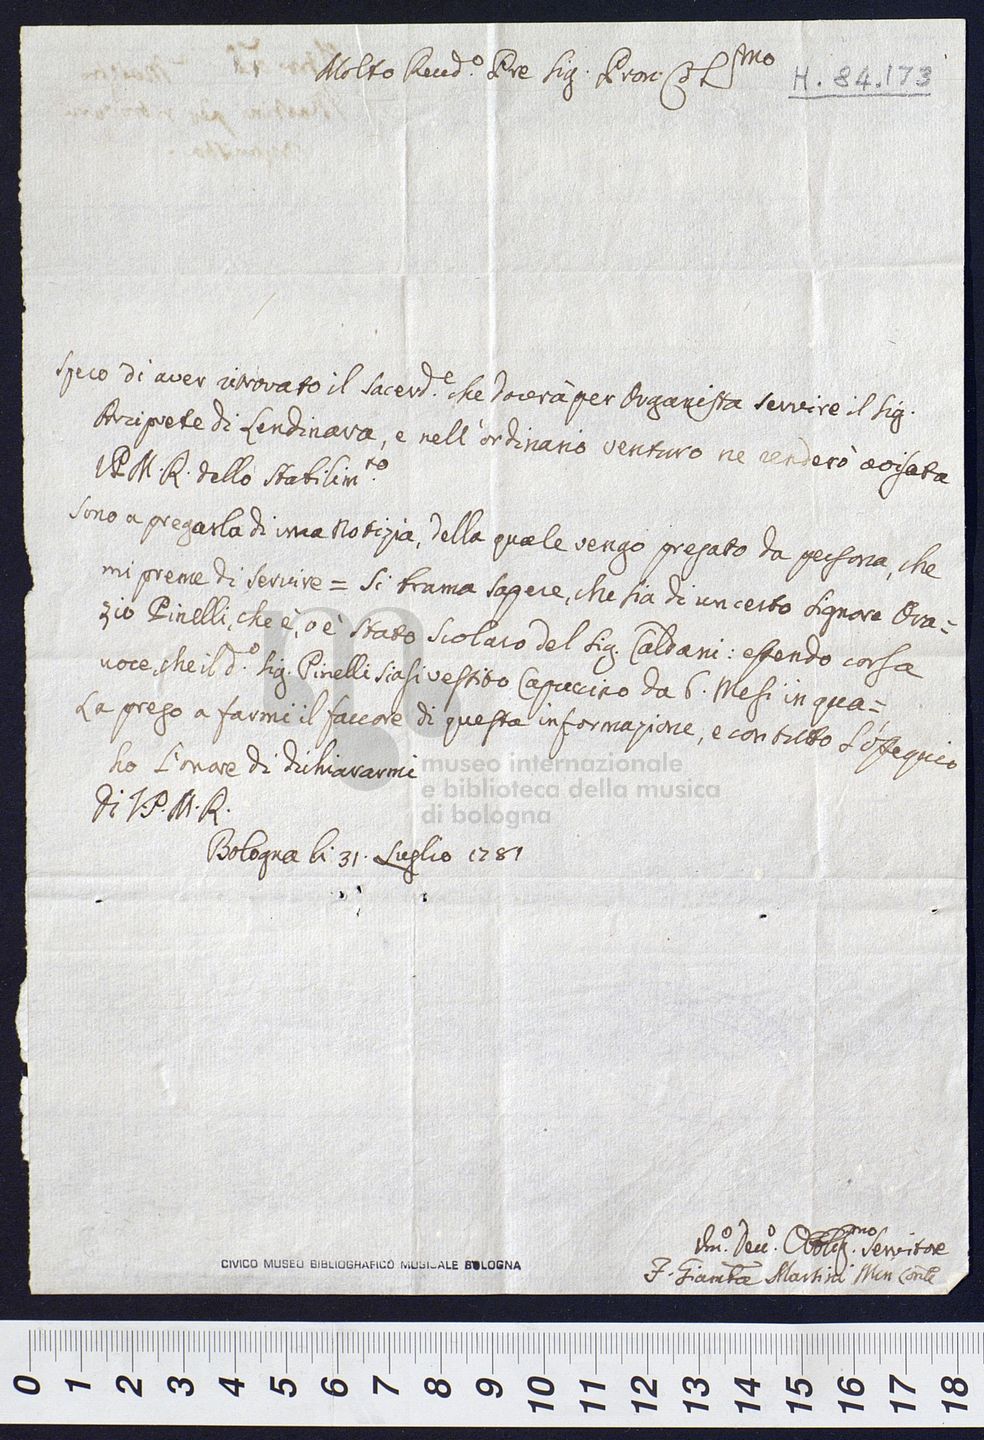 Molto Revd.o Pre Sig. Pron. Col.mo
H. 84.173
Spero di aver ritrovato il Sacerd.e che dovrà per Organista servire il Sig.
Arciprete di Lendinara, e nell'ordinario venturo ne renderò avisata
V.P.M.R. dello Stabilim.to
Sono a pregarla di una Notizia, della quale vengo pregato da persona, che
mi preme di servire = Si brama sapere, che sia di un certo Signore Ora=
zio Pinelli, che è, o è stato Scolaro del Sig. Caldani: essendo corsa
voce, che il d.o Sig. Pinelli siasi vestito Capucino da 6. Mesi in qua =
La prego a farmi il favore di questa informazione, e con tutto L'ossequio
ho L'onore di dichiararmi
di V.P.M.R.
Bologna li 31. Luglio 1781
museo internazionale
e biblioteca della musica
di bologna
Um.o Dev.o Obblig.mo Servitore
F. Giamb.a Martini Min. Con.le
CIVICO MUSEO BIBLIOGRAFICO MUSICALE BOLOGNA
0 1 2 3 4 5 6 7 8 9 10 11 12 13 14 15 16 17 18